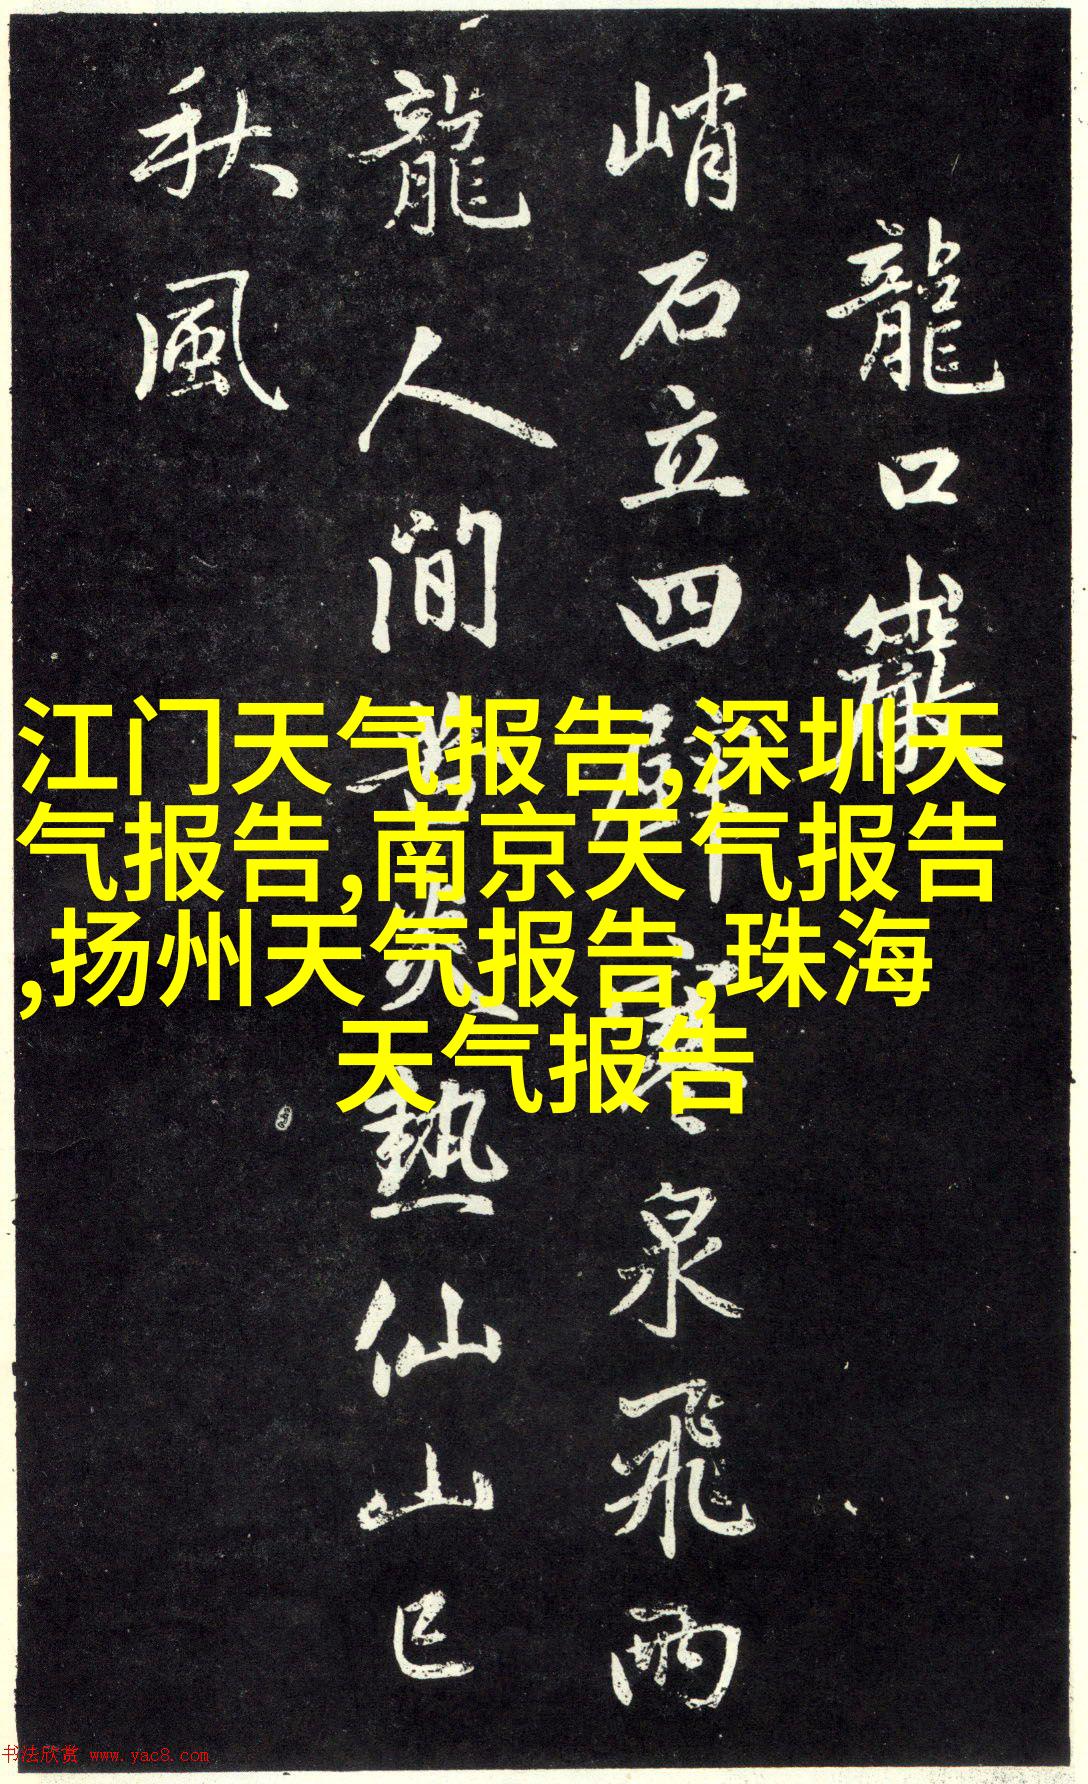 龍口巖
峭石立四壁寒泉飛雨
龍人間苦炎熱仙山已
秋風
江门天气报告,深圳天
气报告,南京天气报告
,扬州天气报告,珠海
天气报告
书法欣赏 www.yac8.com